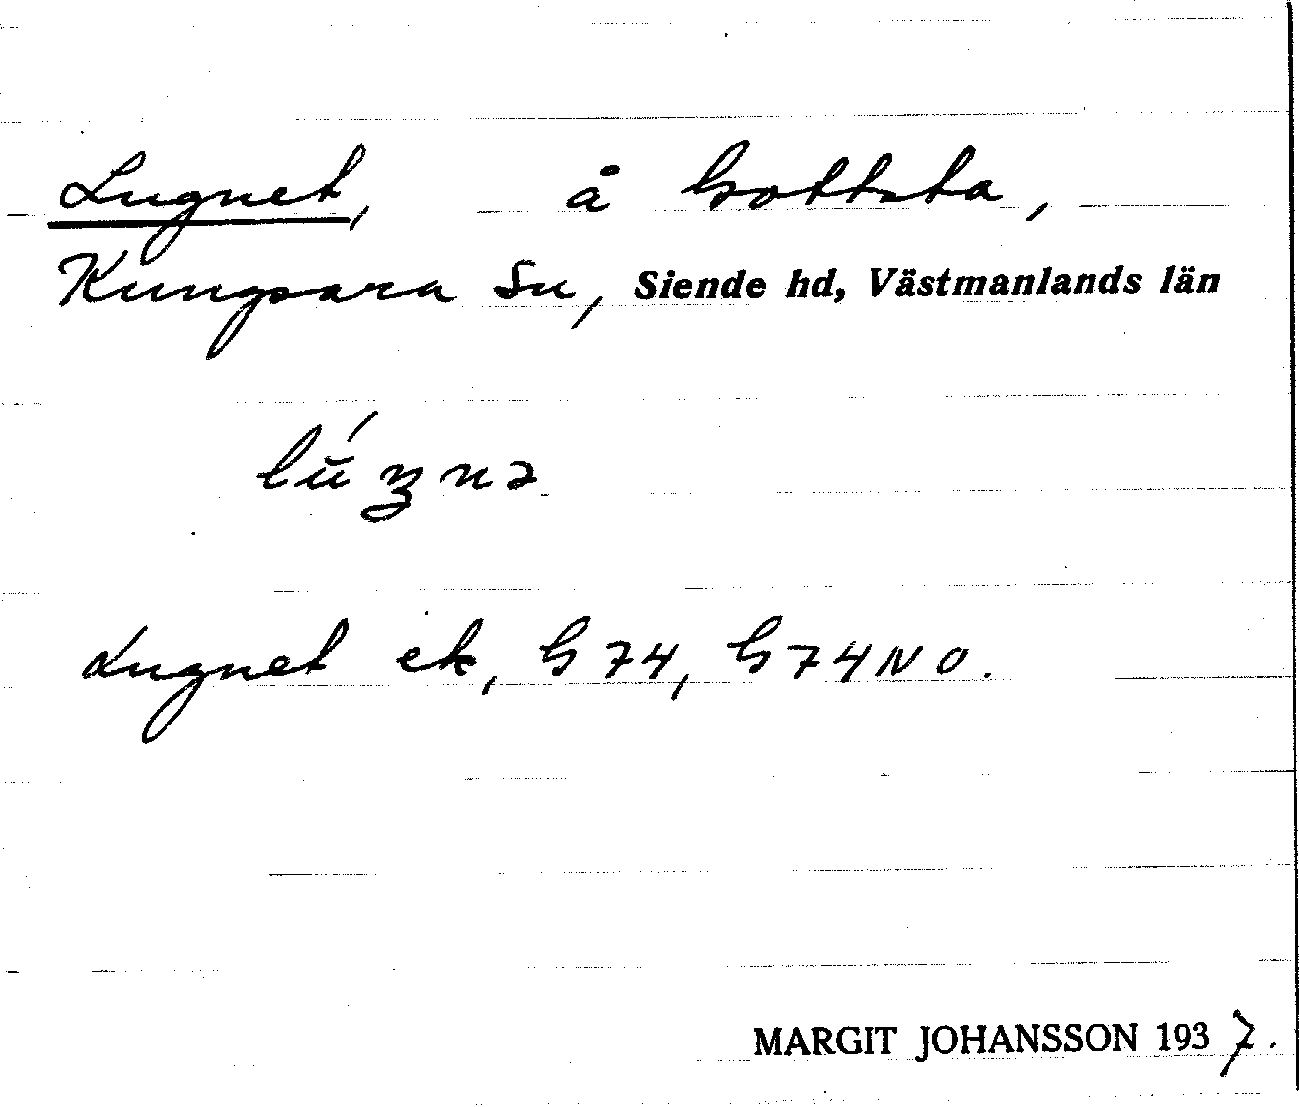 Lugnet, å Gottsta,
Kungsara Sn, Siende hd, Västmanlands län
lúgnə
Lugnet ek, G 74, G 74 NO.
MARGIT JOHANSSON 1937.